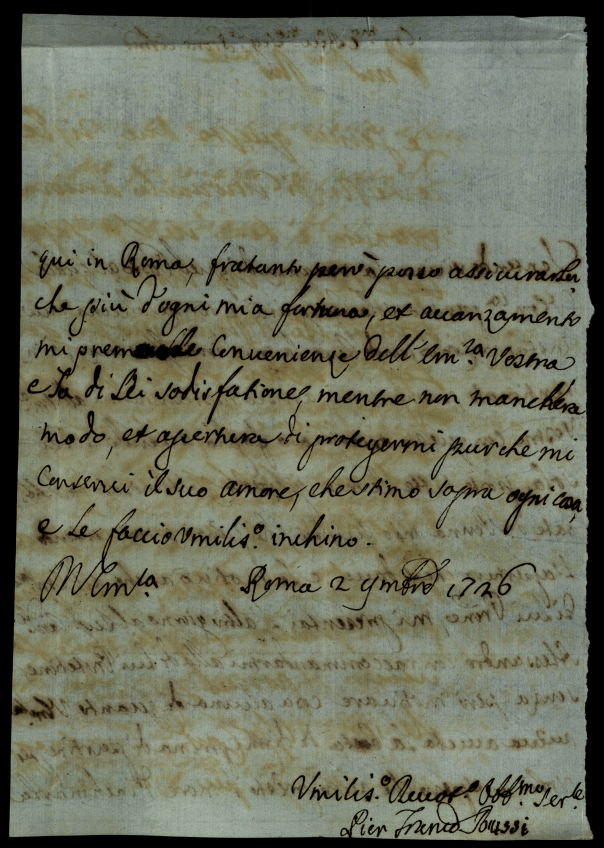 qui in Roma, fratanto però posso assicurarla
che più d'ogni mia fortuna, et avanzamento
mi preme Convenienze dell'Em.za Vostra
e la di Lei sodisfatione, mentre non mancherà
modo, et apertura di protegermi purche mi
Conservi il suo amore, che stimo sopra ogni cosa,
e le faccio Vmilis.o inchino.
Roma 2 9mbre 1726
Vmilis.o Devot.o Obb.mo Ser.e
Pier Franco Bussi